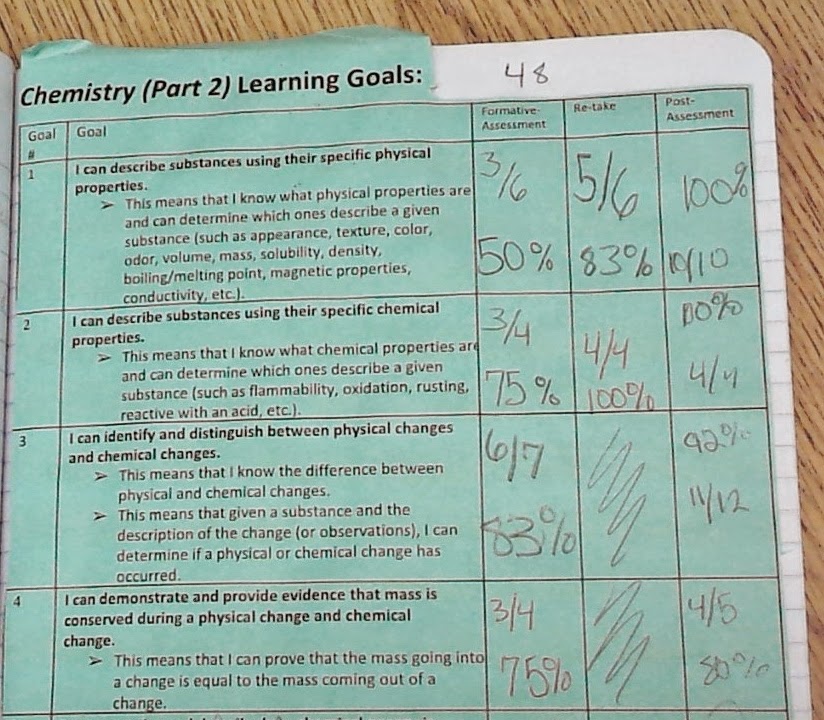 48
Chemistry (Part 2) Learning Goals:
Goal #
Goal
Formative-Assessment
Re-take
Post-Assessment
1
I can describe substances using their specific physical
properties.
➢ This means that I know what physical properties are
and can determine which ones describe a given
substance (such as appearance, texture, color,
odor, volume, mass, solubility, density,
boiling/melting point, magnetic properties,
conductivity, etc.).
3/6
50%
5/6
83%
100%
10/10
2
I can describe substances using their specific chemical
properties.
➢ This means that I know what chemical properties are
and can determine which ones describe a given
substance (such as flammability, oxidation, rusting,
reactive with an acid, etc.).
3/4
75%
4/4
100%
100%
4/4
3
I can identify and distinguish between physical changes
and chemical changes.
➢ This means that I know the difference between
physical and chemical changes.
➢ This means that given a substance and the
description of the change (or observations), I can
determine if a physical or chemical change has
occurred.
6/7
83%
92%
11/12
4
I can demonstrate and provide evidence that mass is
conserved during a physical change and chemical
change.
➢ This means that I can prove that the mass going into
a change is equal to the mass coming out of a
change.
3/4
75%
4/5
80%